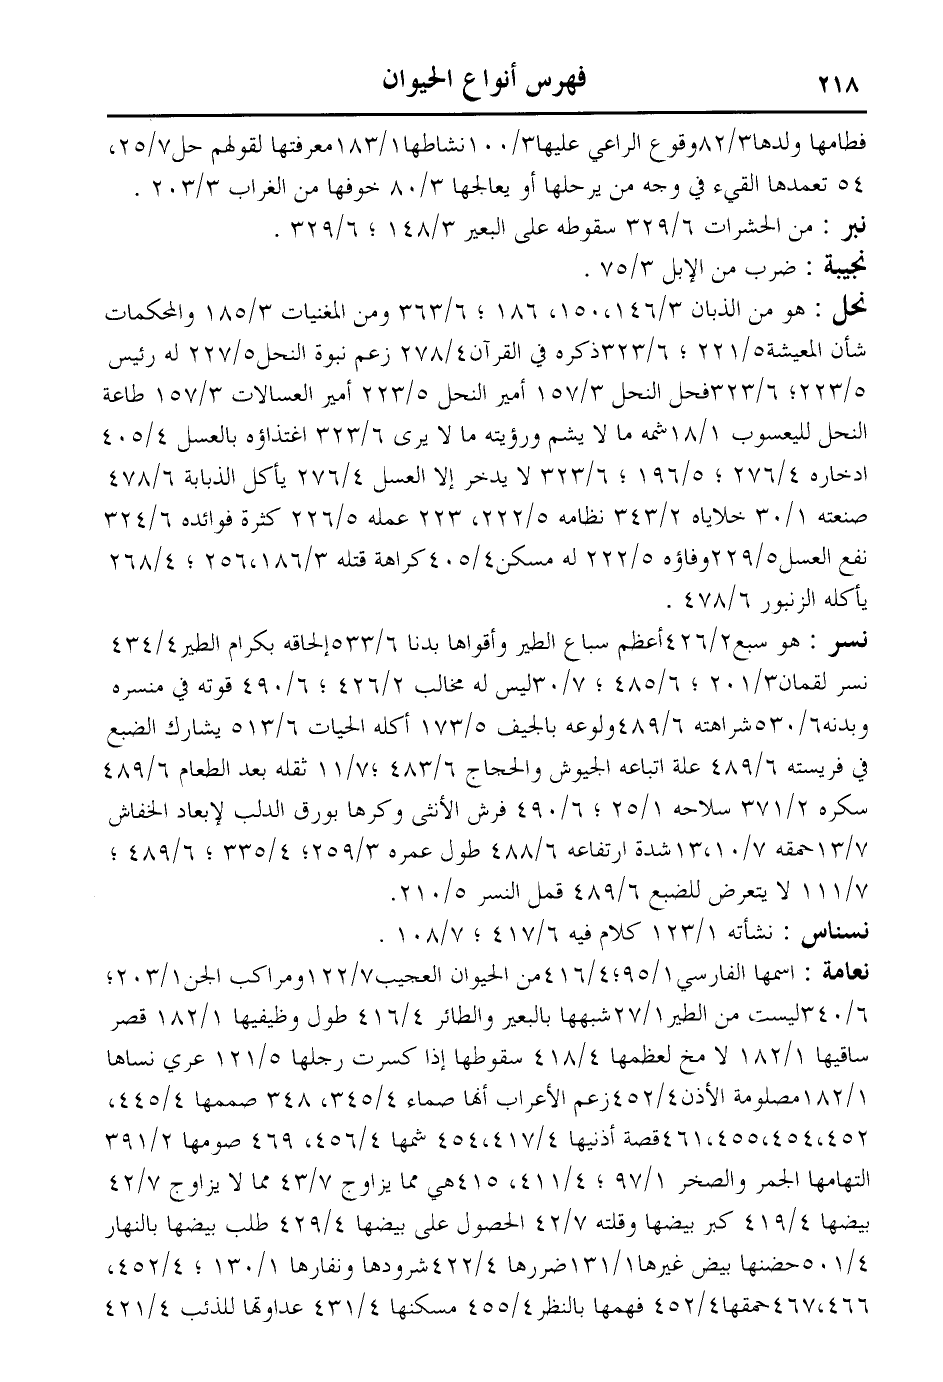 ٢١٨ فهرس أنواع الحيوان
فطامها ولدها٨٢/٣وقوع الراعي عليها١٠٠/٣نشاطها١٨٣/١معرفتها لقولهم حل٢٥/٧،
٥٤ تعمدها القيء في وجه من يرحلها أو يعالجها ٨٠/٣ خوفها من الغراب ٢٠٣/٣ .
نبر : من الحشرات ٣٢٩/٦ سقوطه على البعير ١٤٨/٣ ؛ ٣٢٩/٦ .
نجيبة : ضرب من الإبل ٧٥/٣ .
نحل : هو من الذبان ١٤٦/٣،١٥٠، ١٨٦ ؛ ٣٦٣/٦ ومن المغنيات ١٨٥/٣ والمحكمات
شأن المعيشة٢٢١/٥ ؛ ٣٢٣/٦ذكره في القرآن٢٧٨/٤ زعم نبوة النحل٢٢٧/٥ له رئيس
٢٢٣/٥؛ ٣٢٣/٦فحل النحل ١٥٧/٣ أمير النحل ٢٢٣/٥ أمير العسالات ١٥٧/٣ طاعة
النحل لليعسوب ١٨/١شمه ما لا يشم ورؤيته ما لا يرى ٣٢٣/٦ اغتذاؤه بالعسل ٤٠٥/٤
ادخاره ٢٧٦/٤ ؛ ١٩٦/٥ ؛ ٣٢٣/٦ لا يدخر إلا العسل ٢٧٦/٤ يأكل الذبابة ٤٧٨/٦
صنعته ٣٠/١ خلاياه ٣٤٣/٢ نظامه ٢٢٢/٥، ٢٢٣ عمله ٢٢٦/٥ كثرة فوائده ٣٢٤/٦
نفع العسل٢٢٩/٥وفاؤه ٢٢٢/٥ له مسكن٤٠٥/٤كراهة قتله ١٨٦/٣،٢٥٦ ؛ ٢٦٨/٤
يأكله الزنبور ٤٧٨/٦ .
نسر : هو سبع٤٢٦/٢أعظم سباع الطير وأقواها بدنا ٥٣٣/٦إلحاقه بكرام الطير٤٣٤/٤
نسر لقمان٢٠١/٣ ؛ ٤٨٥/٦ ؛ ٣٠/٧ليس له مخالب ٤٢٦/٢ ؛ ٤٩٠/٦ قوته في منسره
وبدنه٥٣٠/٦شراهته ٤٨٩/٦ولوعه بالجيف ١٧٣/٥ أكله الحيات ٥١٣/٦ يشارك الضبع
في فريسته ٤٨٩/٦ علة اتباعه الجيوش والحجاج ٤٨٣/٦ ؛١١/٧ ثقله بعد الطعام ٤٨٩/٦
سكره ٣٧١/٢ سلاحه ٢٥/١ ؛ ٤٩٠/٦ فرش الأنثى وكرها بورق الدلب لإبعاد الخفاش
١٣/٧حمقه ١٠/٧،١٣شدة ارتفاعه ٤٨٨/٦ طول عمره ٢٥٩/٣؛ ٣٣٥/٤ ؛ ٤٨٩/٦ ؛
١١١/٧ لا يتعرض للضبع ٤٨٩/٦ قمل النسر ٢١٠/٥.
نسناس : نشأته ١٢٣/١ كلام فيه ٤١٧/٦ ؛ ١٠٨/٧ .
نعامة : اسمها الفارسي٩٥/١؛٤١٦/٤من الحيوان العجيب١٢٢/٧ومراكب الجن٢٠٣/١؛
٣٤٠/٦ليست من الطير٢٧/١شبهها بالبعير والطائر ٤١٦/٤ طول وظيفيها ١٨٢/١ قصر
ساقيها ١٨٢/١ لا مخ لعظمها ٤١٨/٤ سقوطها إذا كسرت رجلها ١٢١/٥ عري نساها
١٨٢/١مصلومة الأذن٤٥٢/٤زعم الأعراب أنها صماء ٣٤٥/٤، ٣٤٨ صممها ٤٤٥/٤،
٤٥٢،٤٥٤،٤٥٥،٤٦١قصة أذنيها ٤١٧/٤،٤٥٤ شمها ٤٥٦/٤، ٤٦٩ صومها ٣٩١/٢
التهامها الجمر والصخر ٩٧/١ ؛ ٤١١/٤، ٤١٥هي مما يزاوج ٤٣/٧ مما لا يزاوج ٤٢/٧
بيضها ٤١٩/٤ كبر بيضها وقلته ٤٢/٧ الحصول على بيضها ٤٢٩/٤ طلب بيضها بالنهار
٥٠١/٤حضنها بيض غيرها١٣١/١ضررها ٤٢٢/٤شرودها ونفارها ١٣٠/١ ؛ ٤٥٢/٤،
٤٦٦،٤٦٧حمقها٤٥٢/٤ فهمها بالنظر٤٥٥/٤ مسكنها ٤٣١/٤ عداوتها للذئب ٤٢١/٤